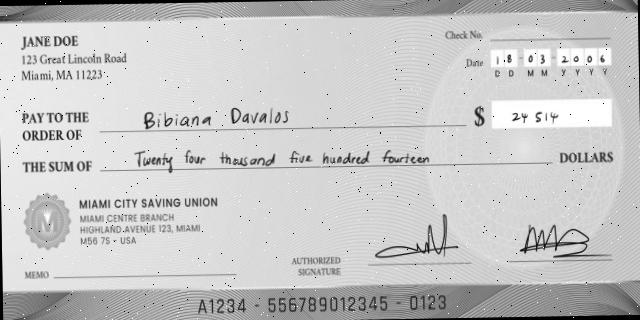 JANE DOE
123 Great Lincoln Road
Miami, MA 11223
Check No.
Date 18 03 2006
D D M M Y Y Y Y
PAY TO THE
ORDER OF Bibiana Davalos $ 24 514
THE SUM OF Twenty four thousand five hundred fourteen DOLLARS
M
MIAMI CITY SAVING UNION
MIAMI CENTRE BRANCH
HIGHLAND AVENUE 123, MIAMI,
M56 7S - USA
AUTHORIZED
SIGNATURE
MEMO
A1234 - 556789012345 - 0123